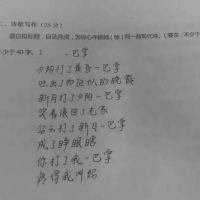 二、诗歌写作（25分）
请自拟标题，自选角度，为你心中的她（他）写一首现代诗。（要求：不少于
不少于40字。）
一巴掌
夕阳打了黄昏一巴掌
吐出了血红似的晚霞
新月打了夕阳一巴掌
哭着滚回了老家
乌云打了新月一巴掌
成了睁眼瞎
你打了我一巴掌
疼得我叫妈